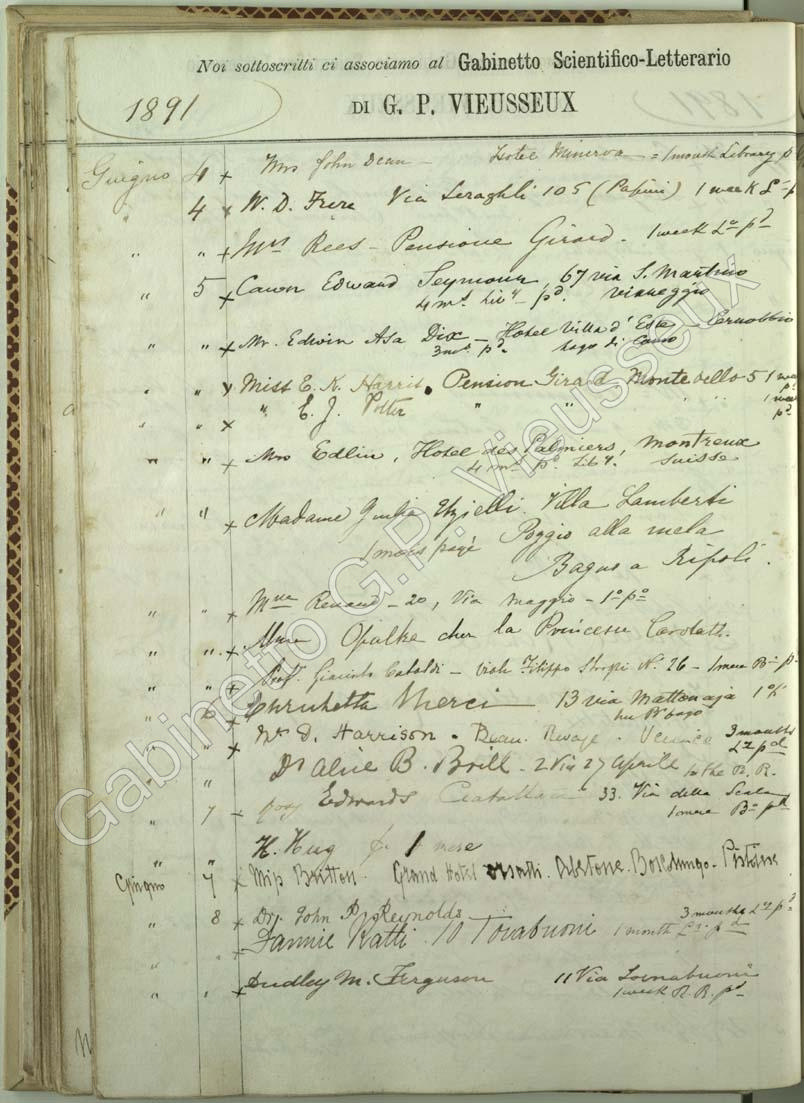 Noi sottoscritti ci associamo al Gabinetto Scientifico-Letterario
1891 DI G. P. VIEUSSEUX
Giugno 4 x Mrs John Dean - Hotel Minerva = 1 month Library p
" 4 x W. D. Frere Via Seraghli 105 (Papini) 1 week L p
" " x Mrs Rees - Pensione Girard. 1 week Ly pd
" 5 x Canon Edward Seymour, 67 via S. Martino
4 ms Liby - pd. Viareggio
" " x Mr. Edwin Asa Dix - Hotel Villa d'Este - Cernobbio
3 ms pd Lago di Como
" " x Miss E. K. Harris. Pension Girard Montebello 5 1 week
pd
" " x " E. J. Potter " " " " 1 week
pd
" " x Mrs Edlin, Hotel des Palmiers, Montreux
4 ms pd Liby. Suisse
" " x Madame Giulia Uzielli. Villa Lamberti
1 mois payé Poggio alla mela
Bagno a Ripoli.
" " x Mlle Renaud - 20, Via Maggio - 1o po
" " x Mme Opalke chez la Princesse
" " x Prof. Giacinto - Viale Filippo Strozzi N. 26 - 1 mese
" 6 x Enrichetta Merci 13 via Mattonaja
" " x D. Harrison. Beau Rivage. Venice 3 months
Ly pd
" Dr Alice B. Brill - 2 Via 27 Aprile 1o the R. R.
" 7 x Edwards 33. Via della Scala
1 mese pd
" " H. Hug 1 mese
Giugno 7 x Miss Britton. Grand Hotel Orsatti. Abetone. Boscolungo. Pistoiese
" 8 x Dr. John P. Reynolds 3 months Ly pd
" x Fannie Ratti. 10 Tornabuoni 1 month Ly. pd
" " x Dudley M. Ferguson 11 Via Tornabuoni
1 week R. R. pd
Gabinetto G.P. Vieusseux